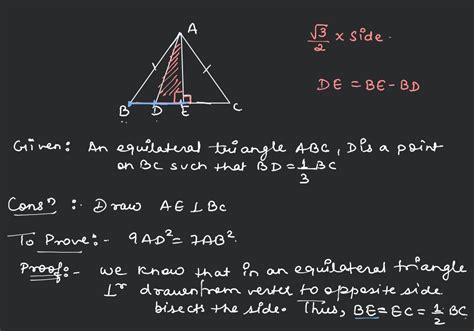 A
B
D
E
C
√3/2 × side.
DE = BE - BD
Given: An equilateral triangle ABC, D is a point
on BC such that BD = 1/3 BC
Consⁿ :- Draw AE ⊥ BC
To Prove:- 9AD² = 7AB²
Proof:- we know that in an equilateral triangle
⊥ʳ drawn from vertex to opposite side
bisects the side. Thus, BE = EC = 1/2 BC